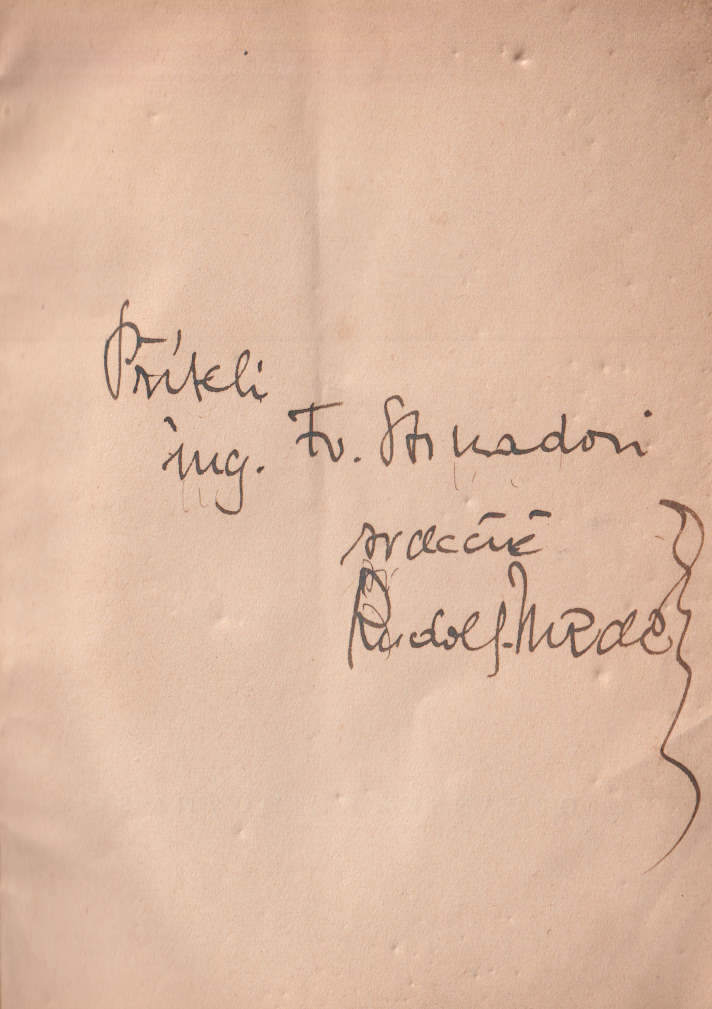 Příteli
ing. Fr. Strnadovi
srdečně
Rudolf Medek